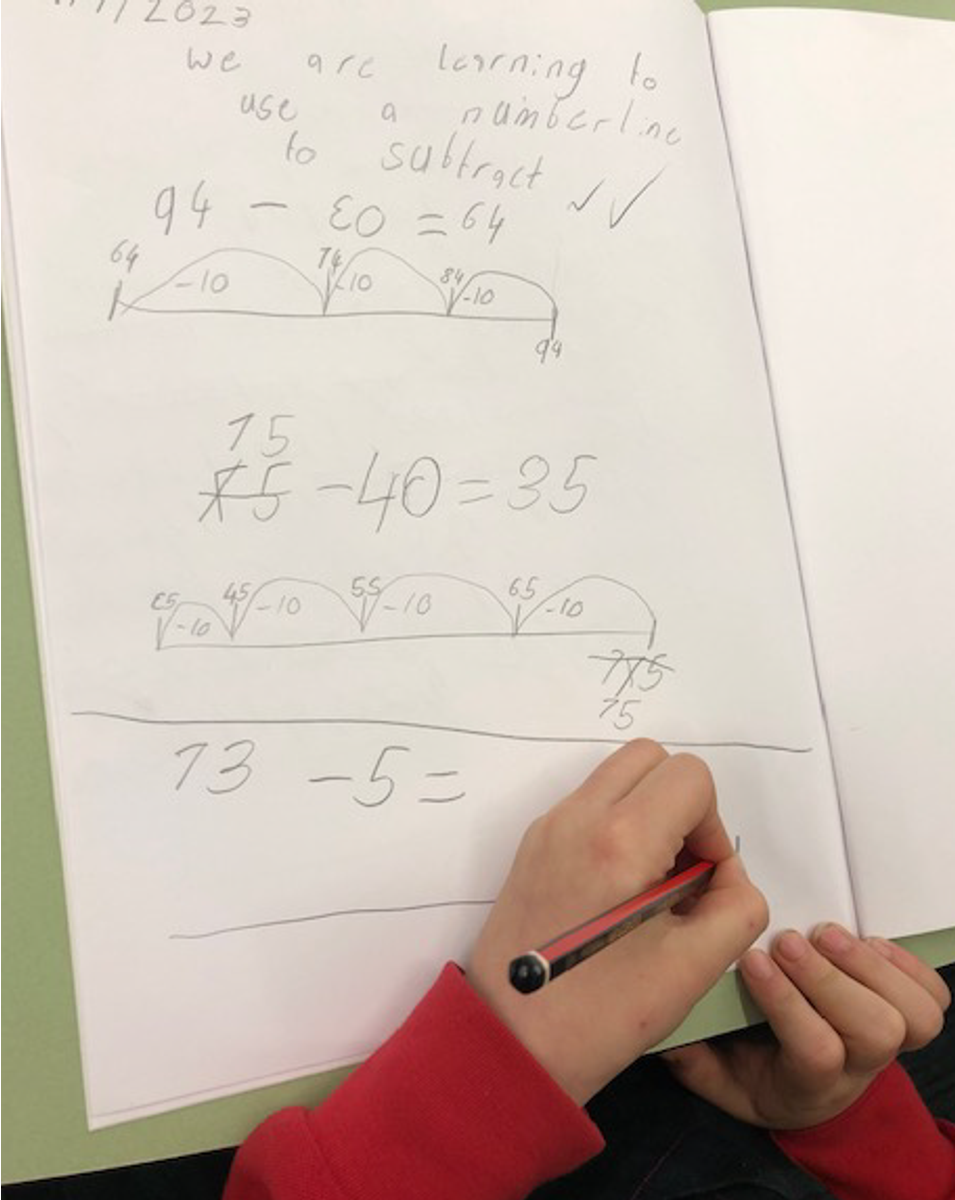 /2023
we are learning to
use a numberline
to subtract ✓✓
94 - 30 = 64
64 -10 74 -10 84 -10
94
75
75 - 40 = 35
35 -10 45 -10 55 -10 65 -10
775
75
73 - 5 =